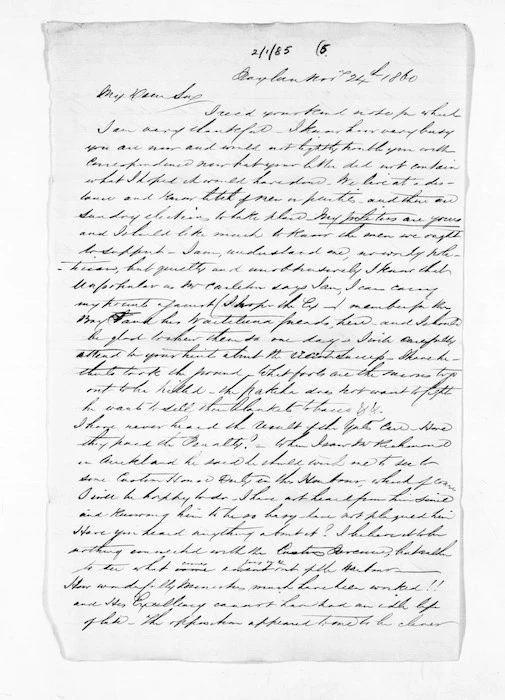 2/1/85 (5.
Novr 24th 1860
My Dear Sir
I recd your kind note for which
I am very thankful - I know how very busy
you are now and would not lightly trouble you with
correspondence now but your letter did not contain
what I hoped it would have done - We live at a dis-
tance and know little of men or parties - and there are
sundry elections to take place My politics are yours
and I should like much to know the men we ought
to support - I am, understand me, no wordy poli-
-tician, but quietly and unobtrusively I know that
Unpopular as Mr Carleton says I am, I can carry
my points against (I hope the Ex -) member for the
Bay and his Waitilena friends, here - and I should
be glad to show them so one day - I will carefully
attend to your hint about the -
took the pound - What fools are the Maories to go
out to be killed - the Pakeha does not want to fight
he wants to sell them blankets tobacco &c &c.
I have never heard the result of the Case - Have
they paid the Penalty? - When I saw Mr Richmond
in Auckland he said he should wish me to see to
some Custom House Duty in this Harbour, which of course
I will be happy to do - I have not heard from him since
and knowing him to be so busy have not plagued him
Have you heard anything about it? I believe it to be
nothing connected with the Customs, but rather
to see what came went out of the Harbour -
How wonderfully Ministers must have been worked!!
and His Excellency cannot have had an idle life
of late - The opposition appeared to me to be clever